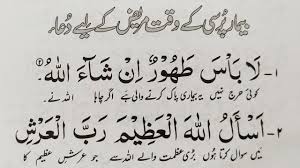 بیمار پُرسی کے وقت مریض کے لیے دُعا۔
۱- لَا بَاْسَ طَهُوْرٌ اِنْ شَآءَ اللّٰهُ ①
کوئی حرج نہیں یہ بیماری پاک کرنے والی ہے اگر چاہا اللہ نے۔
۲- اَسْأَلُ اللّٰهَ الْعَظِيْمَ رَبَّ الْعَرْشِ
میں سوال کرتا ہوں بڑی عظمت والے اللہ سے جو عرشِ عظیم کا